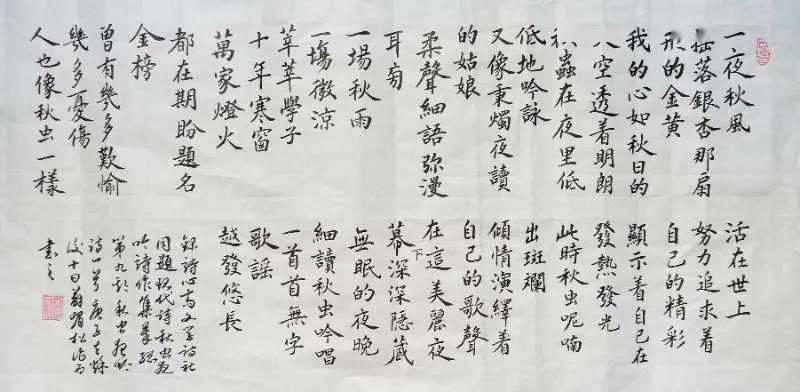 一夜秋風
落銀杏那扇
形的金黃
我的心如秋日的
空透着明朗
蟲在夜里低
低地吟詠
又像秉燭夜讀
的姑娘
柔聲細語弥漫
耳旁
一場秋雨
一塲微涼
莘莘學子
十年寒窗
萬家燈火
都在期盼題名
金榜
曾有幾多歎愉
幾多憂傷
人也像秋虫一樣
活在世上
努力追求着
自己的精彩
顯示着自己在
發熱發光
此時秋虫呢喃
出斑斕
傾情演繹着
自己的歌聲
在這美麗夜
幕下深深隱藏
無眠的夜晚
細讀秋虫吟唱
一首首無字
歌謠
越發悠長
錄詩心高文學詩社
同題現代詩秋虫夜
吟詩作集
第九秋虫夜吟
詩一首庚子
十日
書之